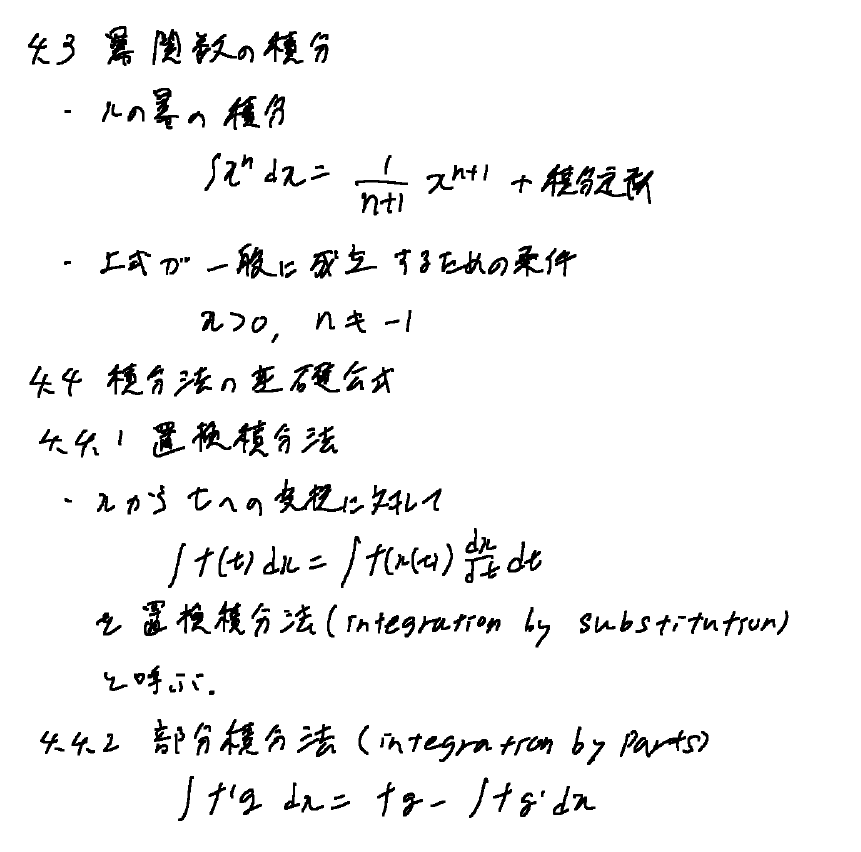 4.3 冪関数の積分
・xの冪の積分
∫xⁿ dx = 1/(n+1) xⁿ⁺¹ + 積分定数
・上式が一般に成立するための条件
x>0, n≠-1
4.4 積分法の基礎公式
4.4.1 置換積分法
・xからtへの変換に対して
∫f(t)dx = ∫f(x(t)) dx/dt dt
を置換積分法(integration by substitution)
と呼ぶ.
4.4.2 部分積分法(integration by parts)
∫f'g dx = fg - ∫fg'dx